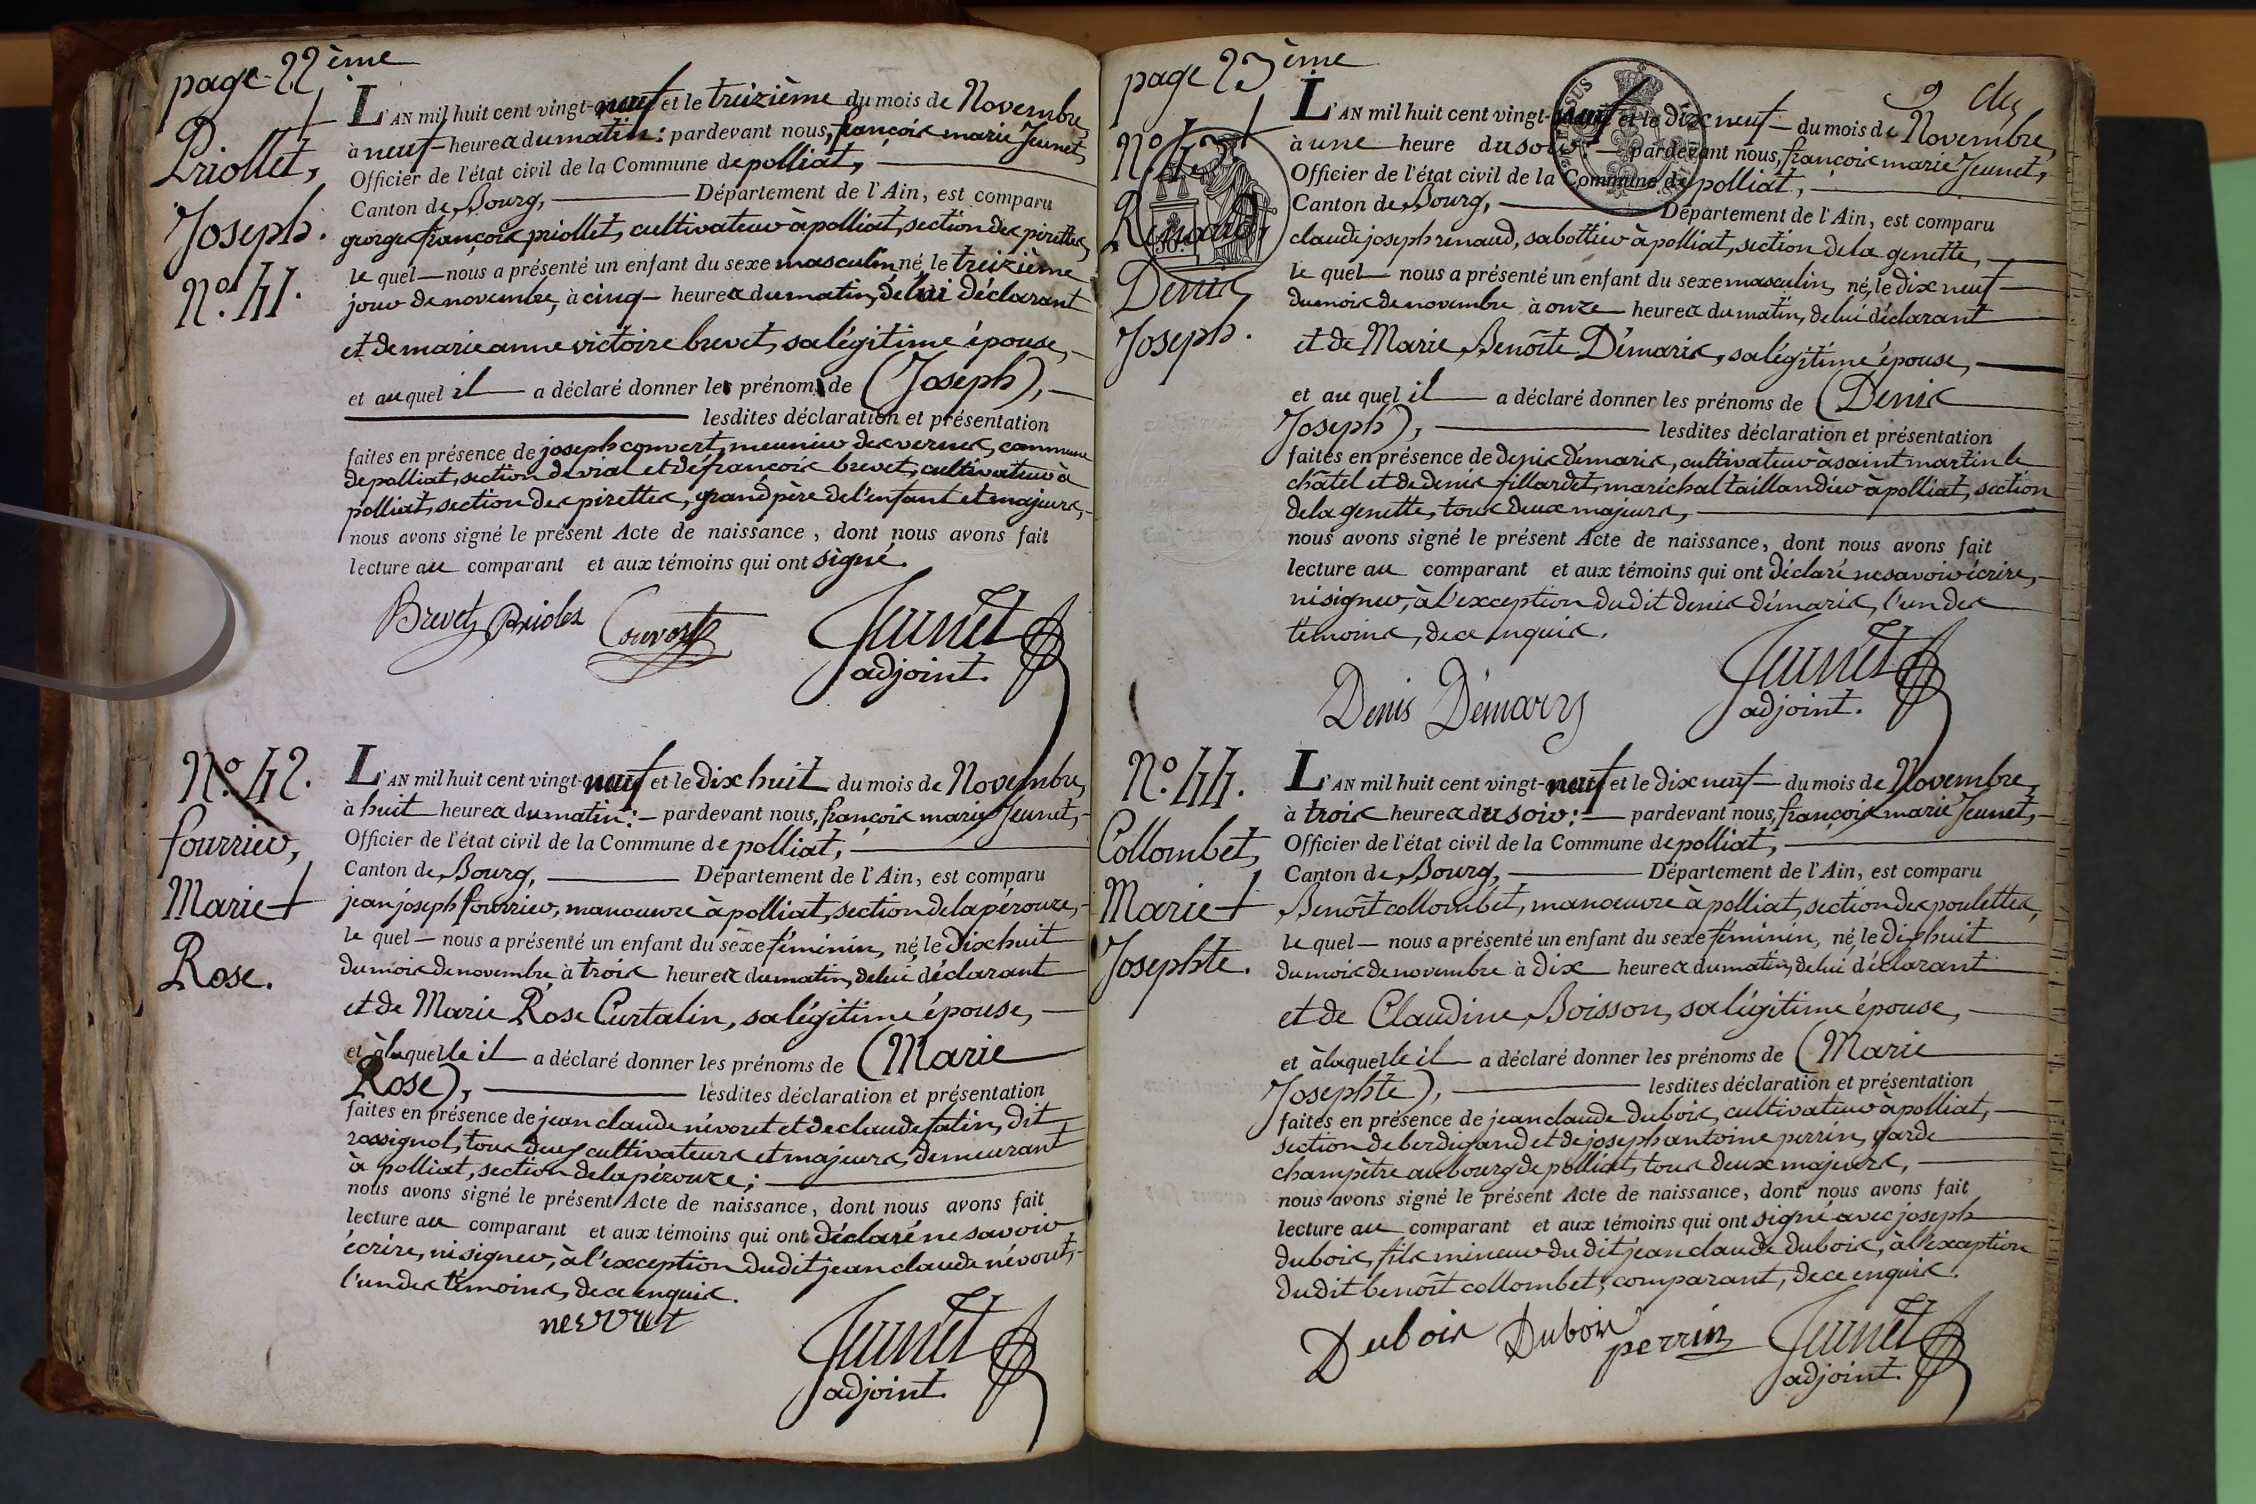 page 22ème
Priollet,
Joseph.
N.º 41.
L'AN mil huit cent vingt-neuf et le treizième du mois de Novembre,
à neuf heures du matin; pardevant nous, françois marie Jeunet,
Officier de l'état civil de la Commune de polliat,
Canton de Bourg, Département de l'Ain, est comparu
george françois priollet, cultivateur à polliat, section des pirettes,
le quel nous a présenté un enfant du sexe masculin né le treizième
jour de novembre, à cinq heures du matin, de lui déclarant
et de marie anne victoire brevet, sa légitime épouse,
et au quel il a déclaré donner les prénoms de (Joseph),
lesdites déclaration et présentation
faites en présence de joseph convert, meunier des vernes, commune
de polliat, section de vial et de françois brevet, cultivateur à
polliat, section des pirettes, grand père de l'enfant et majeurs,
nous avons signé le présent Acte de naissance, dont nous avons fait
lecture au comparant et aux témoins qui ont signé.
Brevet Priolez Convert Jeunet
adjoint.
N.º 42.
fourrier,
Marie
Rose.
L'AN mil huit cent vingt-neuf et le dix huit du mois de Novembre,
à huit heures du matin; pardevant nous, françois marie Jeunet,
Officier de l'état civil de la Commune de polliat,
Canton de Bourg, Département de l'Ain, est comparu
jean joseph fourrier, manoeuvre à polliat, section de la pérouze,
le quel nous a présenté un enfant du sexe féminin, né, le dix huit
du mois de novembre, à trois heures du matin, de lui déclarant
et de Marie Rose Curtalin, sa légitime épouse,
et à laquelle il a déclaré donner les prénoms de (Marie
Rose), lesdites déclaration et présentation
faites en présence de jean claude névoret et de claude fatin, dit
rossignol, tous deux cultivateurs et majeurs, demeurant
à polliat, section de la pérouze;
nous avons signé le présent Acte de naissance, dont nous avons fait
lecture au comparant et aux témoins qui ont déclaré ne savoir
écrire, ni signer, à l'exception dudit jean claude névoret,
l'un des témoins, de ce enquis.
nevoret Jeunet
adjoint.
page 23ème
N.º 43.
Renaud,
Denis
Joseph.
L'AN mil huit cent vingt-neuf et le dix neuf du mois de Novembre,
à une heure du soir pardevant nous, françois marie Jeunet,
Officier de l'état civil de la Commune de polliat,
Canton de Bourg, Département de l'Ain, est comparu
claude joseph renaud, sabottier à polliat, section de la genette,
le quel nous a présenté un enfant du sexe masculin, né, le dix neuf
du mois de novembre à onze heures du matin, de lui déclarant
et de Marie Benoîte Démaris, sa légitime épouse,
et au quel il a déclaré donner les prénoms de (Denis
Joseph), lesdites déclaration et présentation
faites en présence de denis démaris, cultivateur à saint martin le
châtel et de denis fillardet, maréchal taillandier à polliat, section
de la genette, tous deux majeurs,
nous avons signé le présent Acte de naissance, dont nous avons fait
lecture au comparant et aux témoins qui ont déclaré ne savoir écrire,
ni signer, à l'exception dudit denis démaris, l'un des
témoins, de ce enquis.
Denis Démaris Jeunet
adjoint.
N.º 44.
Collombet,
Marie
Josephte.
L'AN mil huit cent vingt-neuf et le dix neuf du mois de Novembre,
à trois heures du soir; pardevant nous, françois marie Jeunet,
Officier de l'état civil de la Commune de polliat,
Canton de Bourg, Département de l'Ain, est comparu
Benoît collombet, manoeuvre à polliat, section des poulettes,
le quel nous a présenté un enfant du sexe féminin, né, le dix huit
du mois de novembre à dix heures du matin, de lui déclarant
et de Claudine Boisson, sa légitime épouse,
et à laquelle il a déclaré donner les prénoms de (Marie
Josephte), lesdites déclaration et présentation
faites en présence de jean claude dubois, cultivateur à polliat,
section de berdigand et de joseph antoine perrin, garde
champêtre au bourg de polliat, tous deux majeurs,
nous avons signé le présent Acte de naissance, dont nous avons fait
lecture au comparant et aux témoins qui ont signé avec joseph
dubois, fils mineur dudit jean claude dubois, à l'exception
dudit benoît collombet, comparant, de ce enquis.
Dubois Dubois perrin Jeunet
adjoint.